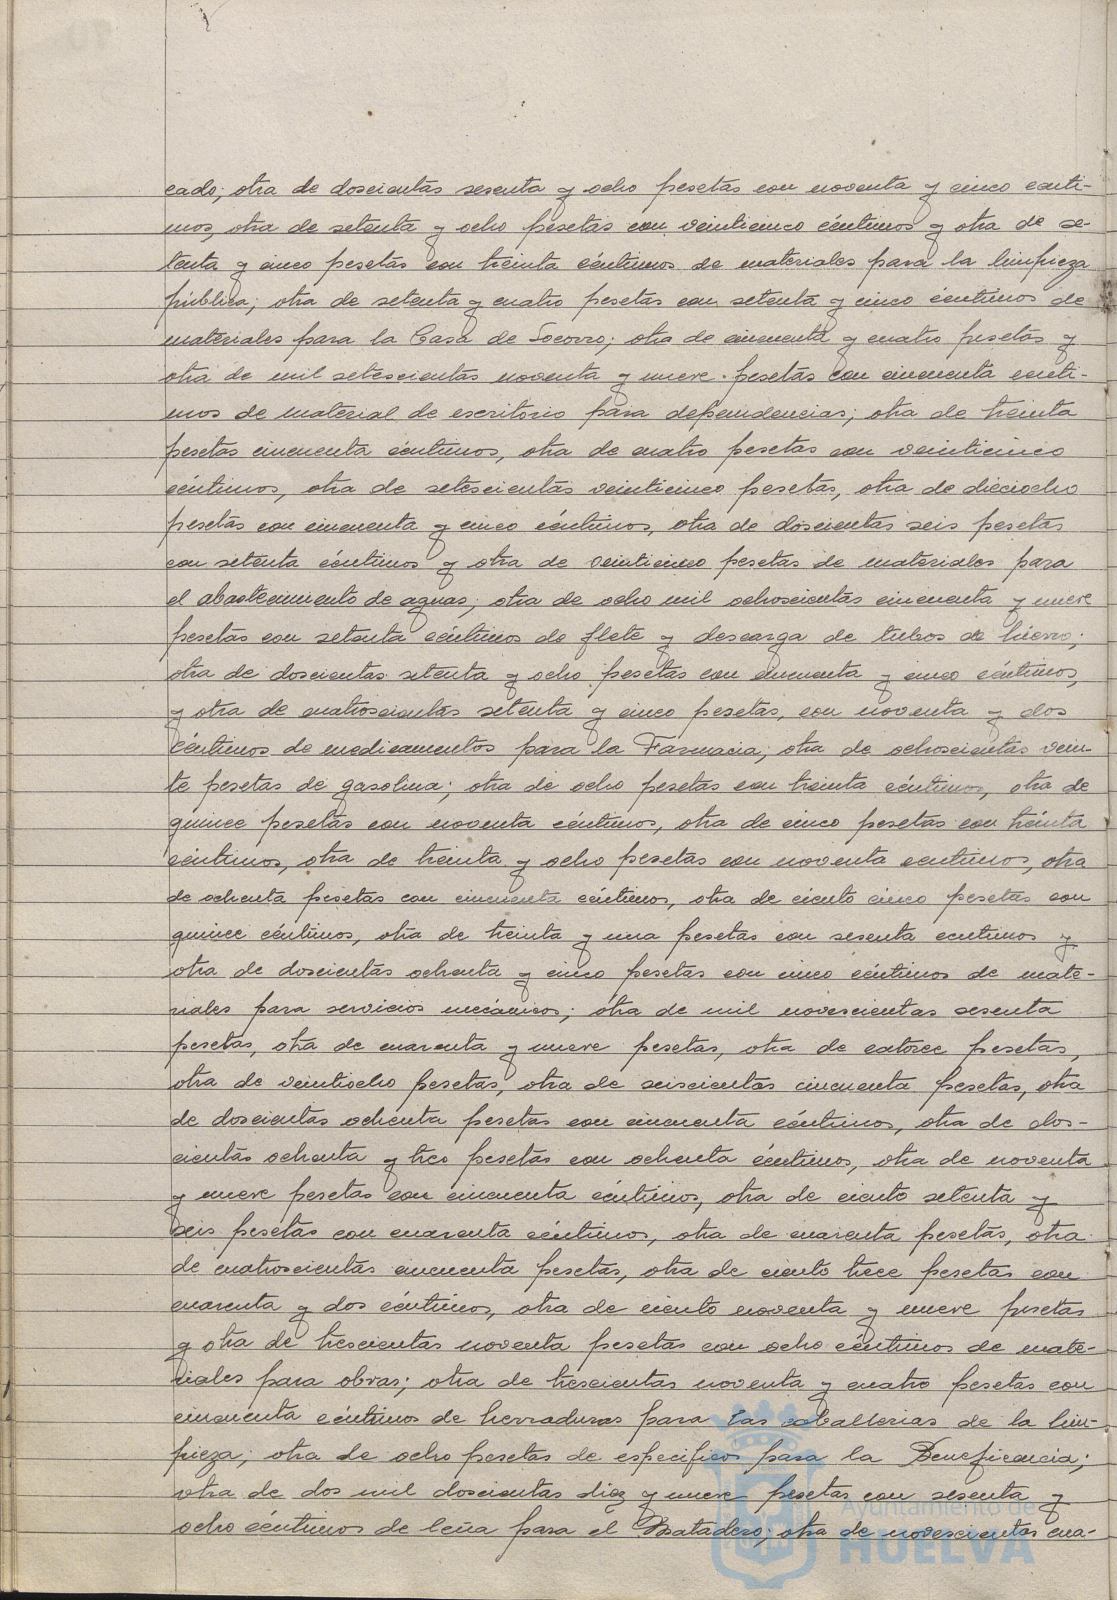 cado; otra de doscientas sesenta y ocho pesetas con noventa y cinco cénti-
mos, otra de setenta y ocho pesetas con veinticinco céntimos y otra de se-
tenta y cinco pesetas con treinta céntimos de materiales para la limpieza
pública; otra de setenta y cuatro pesetas con setenta y cinco céntimos de
materiales para la Casa de Socorro; otra de cincuenta y cuatro pesetas y
otra de mil setescientas noventa y nueve pesetas con cincuenta cénti-
mos de material de escritorio para dependencias; otra de treinta
pesetas cincuenta céntimos, otra de cuatro pesetas con veinticinco
céntimos, otra de setescientas veinticinco pesetas, otra de dieciocho
pesetas con cincuenta y cinco céntimos, otra de doscientas seis pesetas
con setenta céntimos y otra de veinticinco pesetas de materiales para
el abastecimiento de aguas; otra de ocho mil ochoscientas cincuenta y nueve
pesetas con setenta céntimos de flete y descarga de tubos de hierro;
otra de doscientas setenta y ocho pesetas con cincuenta y cinco céntimos,
y otra de cuatroscientas setenta y cinco pesetas, con noventa y dos
céntimos de medicamentos para la Farmacia; otra de ochoscientas vein-
te pesetas de gasolina; otra de ocho pesetas con treinta céntimos, otra de
quince pesetas con noventa céntimos, otra de cinco pesetas con treinta
céntimos, otra de treinta y ocho pesetas con noventa centimos, otra
de ochenta pesetas con cincuenta céntimos, otra de ciento cinco pesetas con
quince céntimos, otra de treinta y una pesetas con sesenta centimos y
otra de doscientas ochenta y cinco pesetas con cinco céntimos de mate-
riales para servicios mecánicos; otra de mil novescientas sesenta
pesetas, otra de cuarenta y nueve pesetas, otra de catorce pesetas,
otra de veintiocho pesetas, otra de seiscientas cincuenta pesetas, otra
de doscientas ochenta pesetas con cincuenta céntimos, otra de dos-
cientas ochenta y tres pesetas con ochenta céntimos, otra de noventa
y nueve pesetas con cincuenta céntimos, otra de ciento setenta y
seis pesetas con cuarenta céntimos, otra de cuarenta pesetas, otra
de cuatroscientas cincuenta pesetas, otra de ciento trece pesetas con
cuarenta y dos céntimos, otra de ciento noventa y nueve pesetas
y otra de trescientas noventa pesetas con ocho céntimos de mate-
riales para obras; otra de trescientas noventa y cuatro pesetas con
cincuenta céntimos de herraduras para las caballerias de la lim-
pieza; otra de ocho pesetas de especificos para la Beneficencia;
otra de dos mil doscientas diez y nueve pesetas con sesenta y
ocho céntimos de leña para el Matadero; otra de novescientas cua-
Ayuntamiento de
HUELVA